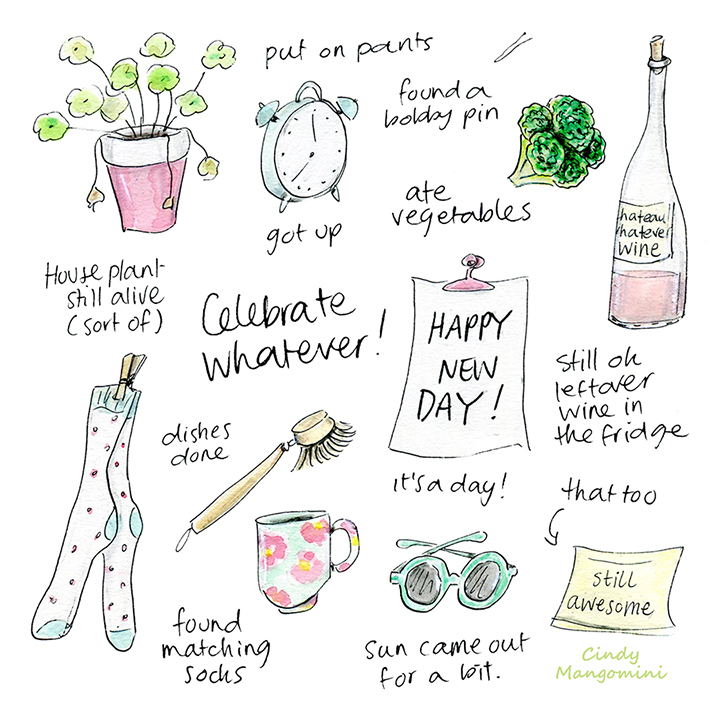 put on pants
found a
bobby pin
got up
ate
vegetables
hateau
hatever
WINE
House plant
still alive
(sort of)
Celebrate
whatever!
HAPPY
NEW
DAY!
still ok
leftover
wine in
the fridge
dishes
done
it's a day!
that too
still
awesome
found
matching
socks
sun came out
for a bit.
Cindy
Mangomini